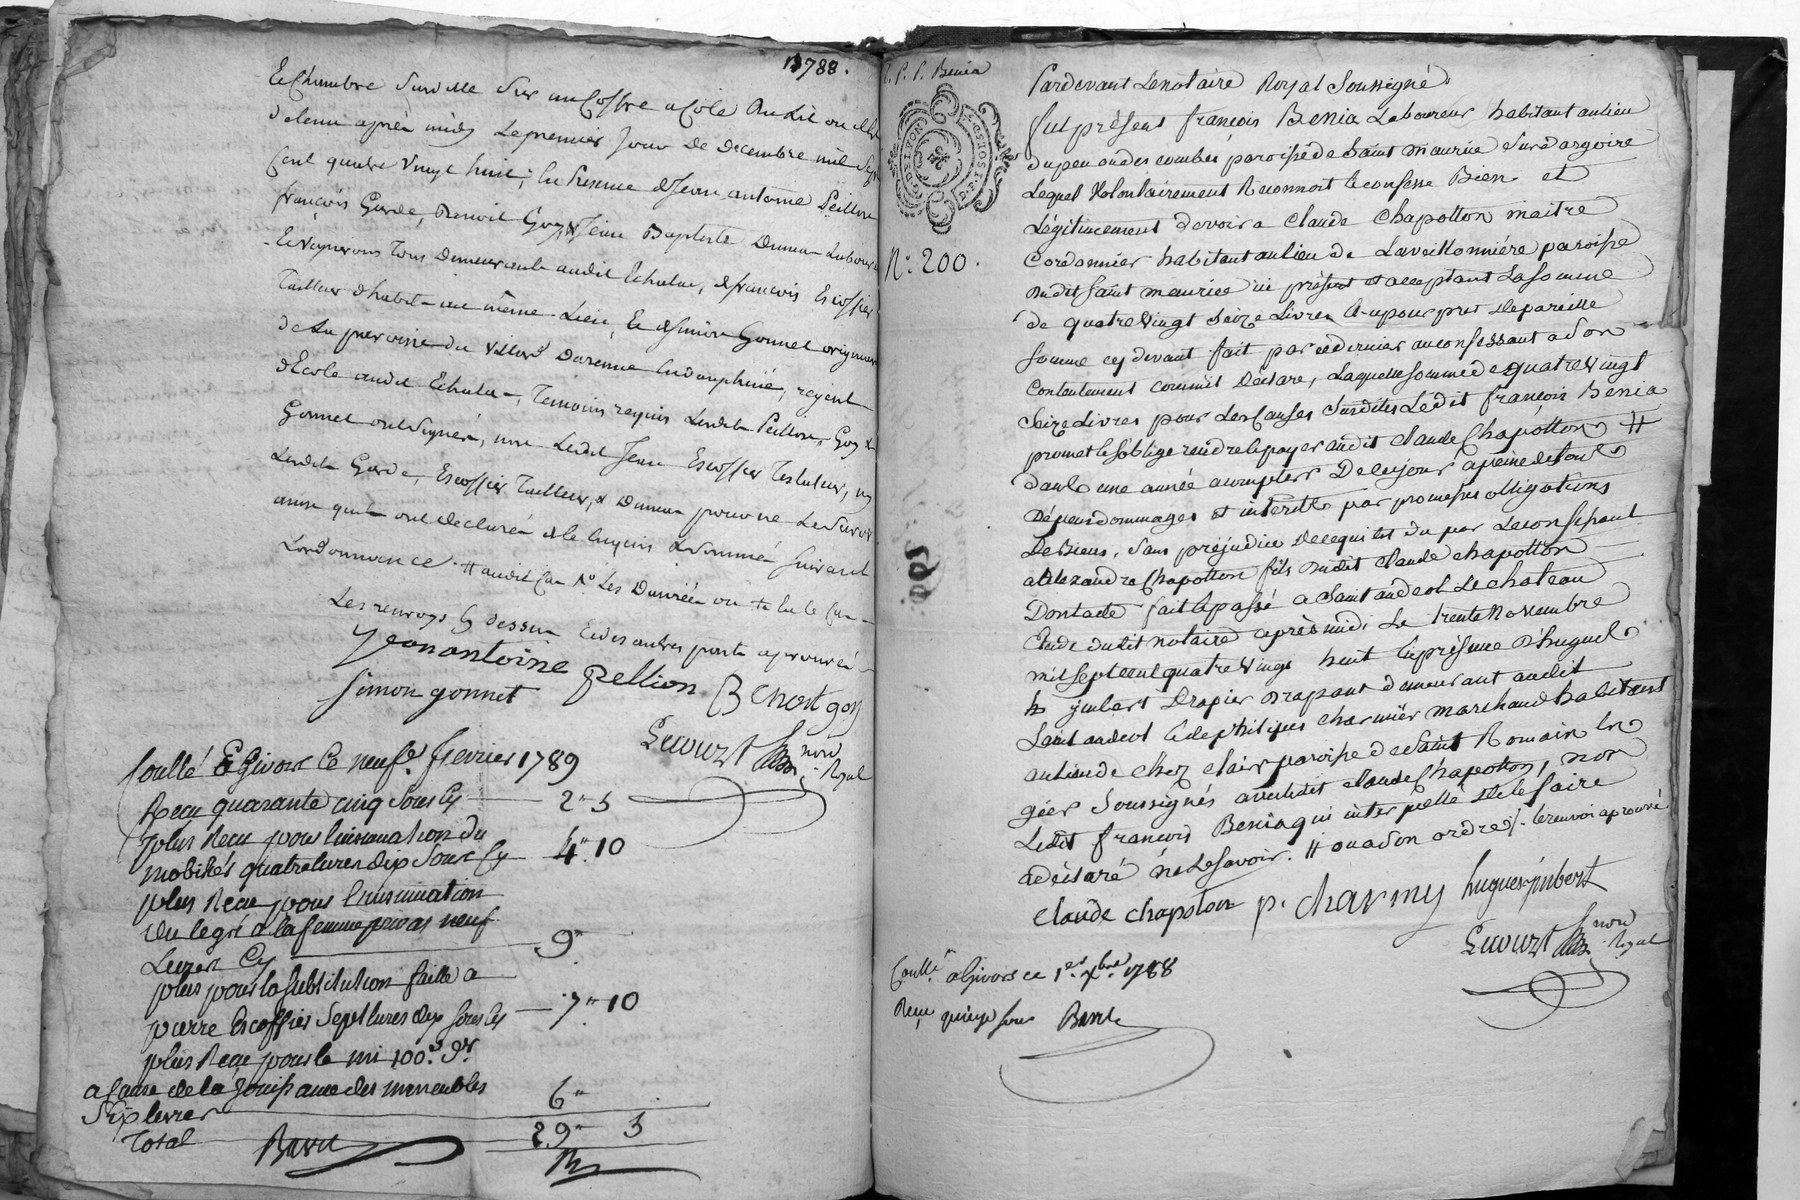 1788.
Echambre Surville Sur un Coffre a Cote Du Lit ou elle
detenu après midy Le premier Jour De Decembre mil Sept
Cent quatre Vingt huit, En Presence de Jean antoine Peillon
françois Garde, Benoit Goy & Jean Baptiste Dumas Laboureurs
& Vignerons Tous Demeurants audit Echalas, de françois Escoffier
Tailleur d'habits au même Lieu, Et de Simon Gonnet originaire
de La paroisse du Villard Darenne En dauphiné, regent
d'Ecole audit Echalas, Temoins requis Lesdits Peillon, Goy &
Gonnet ont Signés, non Ledit Jean Escoffier Testateur, ny
Lesdits Garde, Escoffier Tailleur, & Dumas pour ne Le Savoir
ainsi quils ont declarés de ce Enquis & Sommés Suivant
Lordonnance. # audit Cas
Les renvoys cy dessus Et des autres parts aprouvés
Jean antoine pellion Benoit goy
Simon gonnet
Lecourt nore Royal
Conllé A Givors Ce neufe fevrier 1789
Reçu quarante cinq Sous Cy 2" 5
plus Reçu pour linsinuation du
mobilier quatre livres dix Sous Cy 4" 10
plus Reçu pour L'insinuation
du legs a la femme neuf
Livres Cy 9"
plus pour la Substitution faitte a
pierre Escoffier Sept livres dix Sous Cy 7" 10
plus Reçu pour le mi 100e Dr
a Cause de la Jouissance des immeubles
Six livres 6"
Total 29" 5
Barit
P. P. Benia
G. D. LYON
No. 200.
Pardevant Le notaire Royal Soussigné
fut présent françois Benia Laboureur habitant au lieu
du peu ou des combes paroisse de Saint maurice Sur dargoire
Lequel Volontairement Reconnoit & confesse Bien et
Légitimement devoir a Claude Chapotton maitre
Cordonnier habitant au lieu de Lavaillonniére paroisse
dudit Saint maurice ici présent et acceptant La Somme
de quatre Vingt Seize Livres & a pour pret de pareille
Somme cy devant fait par ce dernier au confessant a Son
Contentement comme il Déclare, Laquelle Somme de quatre Vingt
Seize Livres pour Les Causes Susdites Ledit françois Benia
promet & soblige rendre & payer audit Claude Chapotton #
dans une année a compter De ce jour a peine de tous
Dépens dommages et interêts par promesses obligations
De Biens, Sans préjudice de ce qui est du par Le confessant
a Alexandre Chapotton fils dudit Claude Chapotton
Dont acte fait & passé a Saint andeol Le chateau
Etude dudit notaire après midi Le trente Novembre
mil Sept cent quatre Vingt huit En présence d'hugues
jinbert Drapier Drapant demeurant audit
Saint andeol & de philipes charmier marchand habitant
au lieu de Chez Clair paroisse de Saint Romain En
gier Soussignés avec ledit Claude Chapotton, non
Ledit françois Benia qui interpellé de le faire
a déclaré ne Le Savoir. # ou a Son ordre /. le renvoi aprouvé
Claude chapoton p. charmy hugues jinbert
Lecourt nore Royal
Conllé a Givors ce 1er Xbre 1788
Reçu quinze Sous Barit